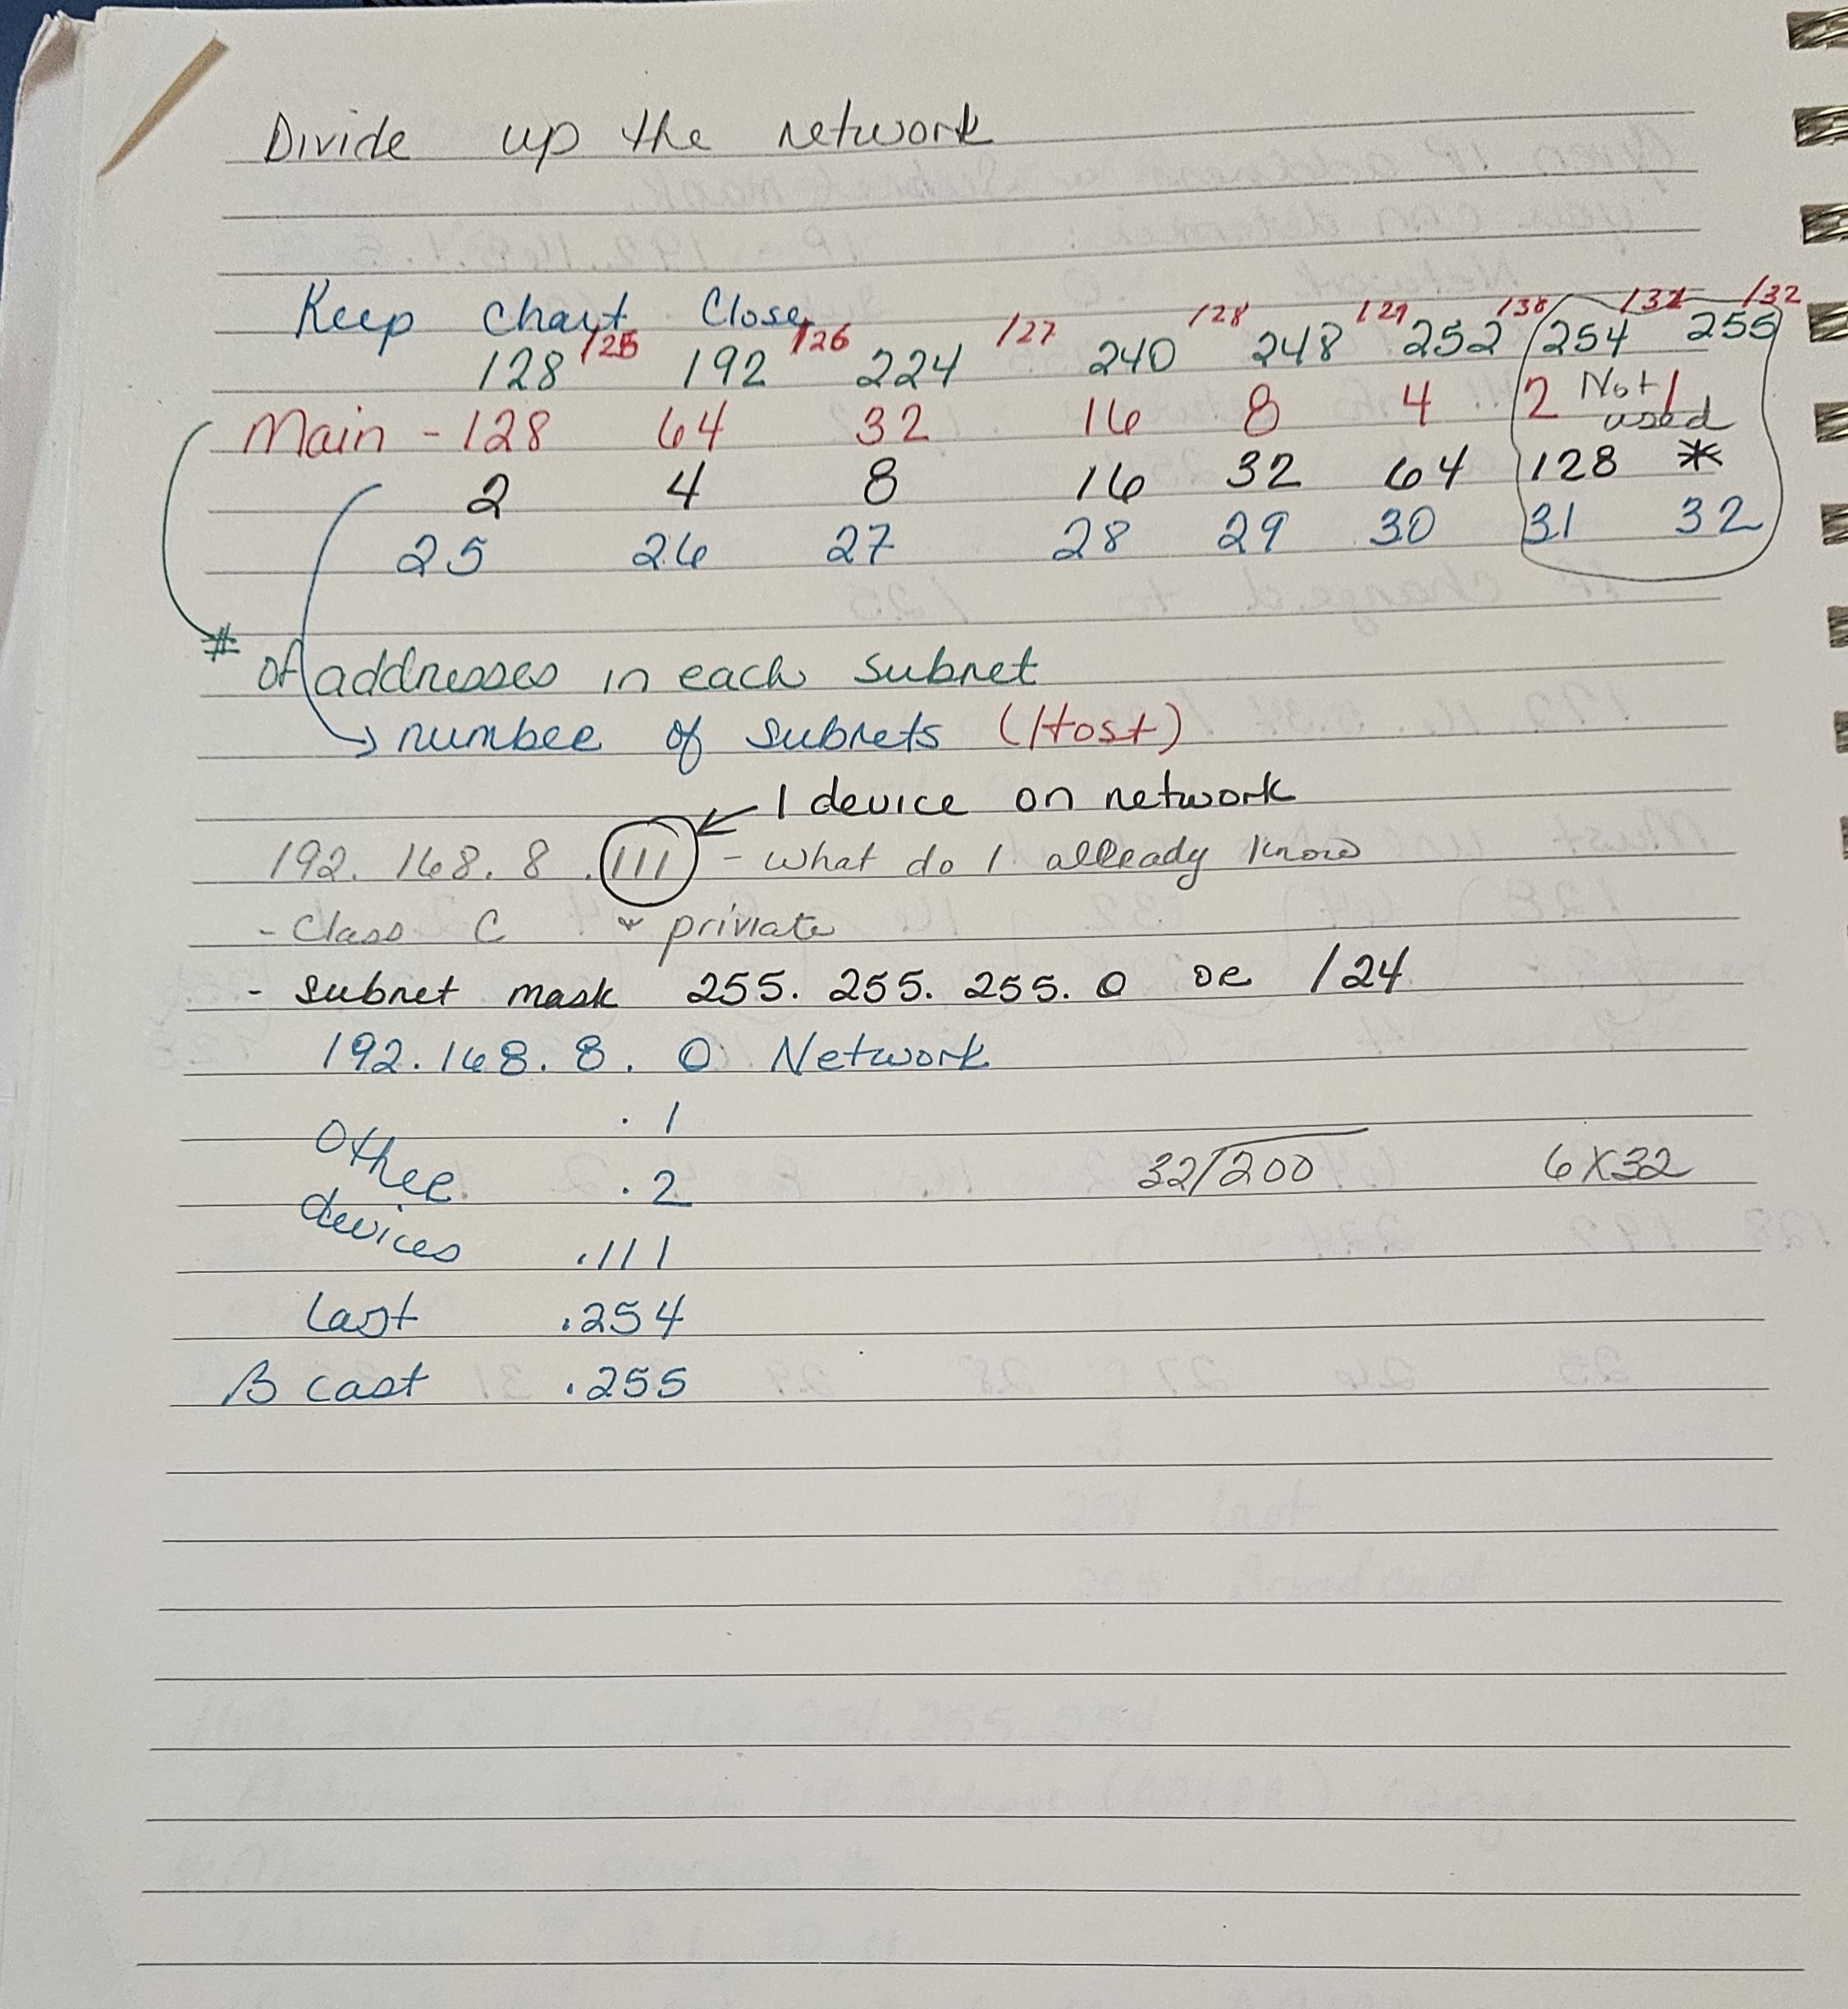 Divide up the network
Keep Chart Close
128 /25 192 /26 224 /27 240 /28 248 /29 252 /30 254 /31 255 /32
Main - 128 64 32 16 8 4 2 Not used 1
2 4 8 16 32 64 128 *
25 26 27 28 29 30 31 32
# of addresses in each subnet
number of subnets (Host)
1 device on network
192.168.8.111 - what do I already know
- Class C private
- subnet mask 255.255.255.0 or /24
192.168.8.0 Network
.1
Other .2 32/200 6X32
devices .111
last .254
B cast .255